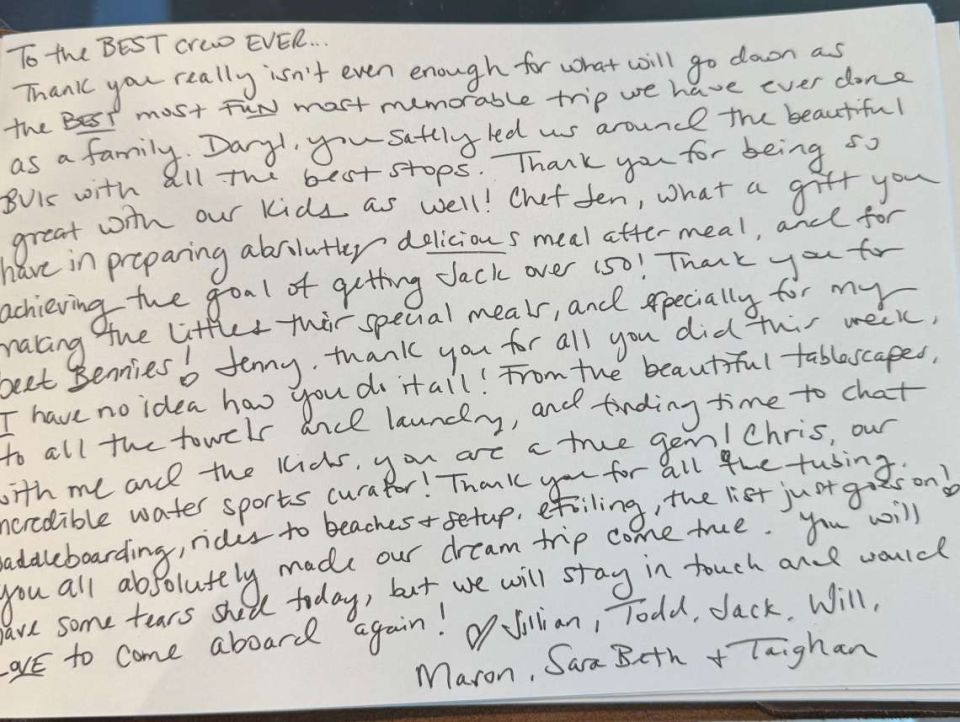 To the BEST crew EVER...
Thank you really isn't even enough for what will go down as
the BEST most FUN most memorable trip we have ever done
as a family. Daryl, you safely led us around the beautiful
BVIs with all the best stops. Thank you for being so
great with our kids as well! Chef Jen, what a gift you
have in preparing absolutley delicious meal after meal, and for
achieving the goal of getting Jack over 150! Thank you for
making the littles their special meals, and especially for my
beet Bennies! Jenny, thank you for all you did this week,
I have no idea how you do it all! From the beautiful tablescapes,
to all the towels and laundry, and finding time to chat
with me and the kids, you are a true gem! Chris, our
incredible water sports curator! Thank you for all the tubing,
paddleboarding, rides to beaches + setup, efoiling, the list just goes on!
You all absolutely made our dream trip come true. You will
have some tears shed today, but we will stay in touch and would
LOVE to come aboard again! ♡ Jillian, Todd, Jack, Will,
Maron, Sara Beth + Taighan